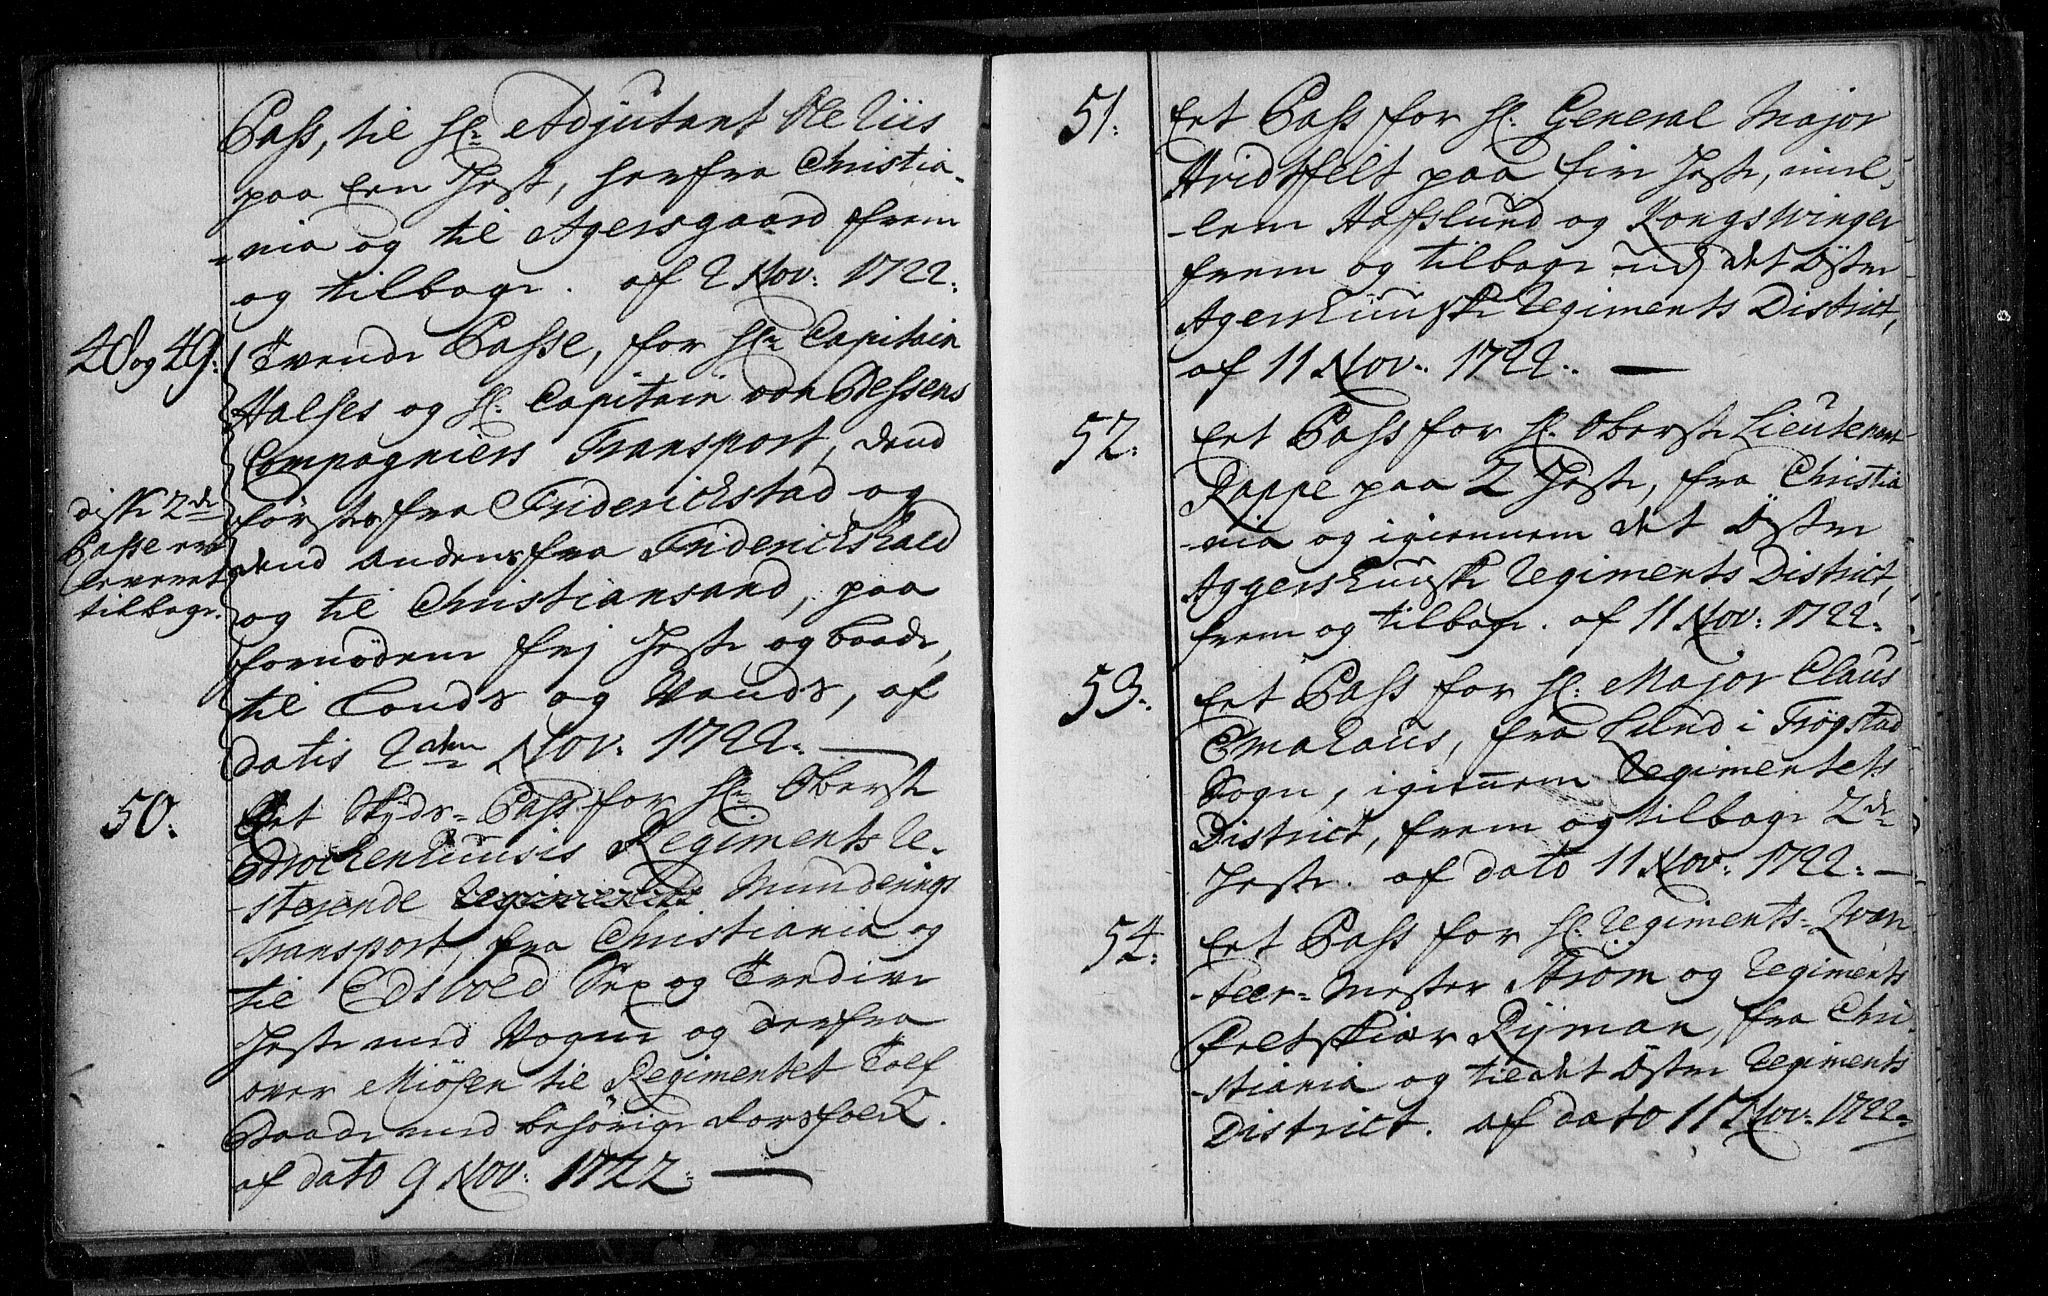 Pass, til Hr: Adjutant
paa een Hest, herfra Christia-
-nia og til Agersgaard frem
og tilbage. af 2 Nov: 1722.
48 og 49. Tvende Passe, for Hr: Capitain
Halses og Hr. Capitain von Dessens
Compagniers Transport, dend
førstes fra Friderickstad og
diße 2de
Passe ere
leveret
tilbage.
dend andens fra Friderickshald
og til Christiansand, paa
fornødene frj Heste og Baade,
til Lands og Vands, af
datis 2den Nov: 1722.
50. Eet Skyds-Pass for Hr: Oberste
Brockenhuusis Regiments Re-
-sterende Munderings
Transport, fra Christiania og
til Edsvold Sex og Tredive
Heste med Vogne og derfra
over Miösen til Regimentet Tolf
Baade med behörige Rorsfolck.
af dato 9 Nov: 1722.
51. Eet Pass for Hr. General Major
Hvidtfelt paa fire Heste, imel-
-lem Hafslund og Kongswinger
frem og tilbage ud det Östre
Agershuuske Regiments District,
af 11 Nov: 1722.
52. Eet Pass for Hr. Oberste Lieutenant
Rappe paa 2 Heste, fra Christia
-nia og igiennem det Östre
Aggershuuske Regiments District,
frem og tilbage. af 11 Nov: 1722.
53. Eet Pass for Hr. Major Claus
Emahaus, fra Lund i Trögstad
Sogn, igiennem Regimentets
District, frem og tilbage 2de
Heste. af dato 11 Nov: 1722.
54. Eet Pass for Hr. Regiments-Qvar
-teer-Mester Strom og Regiments
Feltskiær Rijman, fra Chri-
-stiania og til det Östre Regiments
District. af dato 11 Nov: 1722.